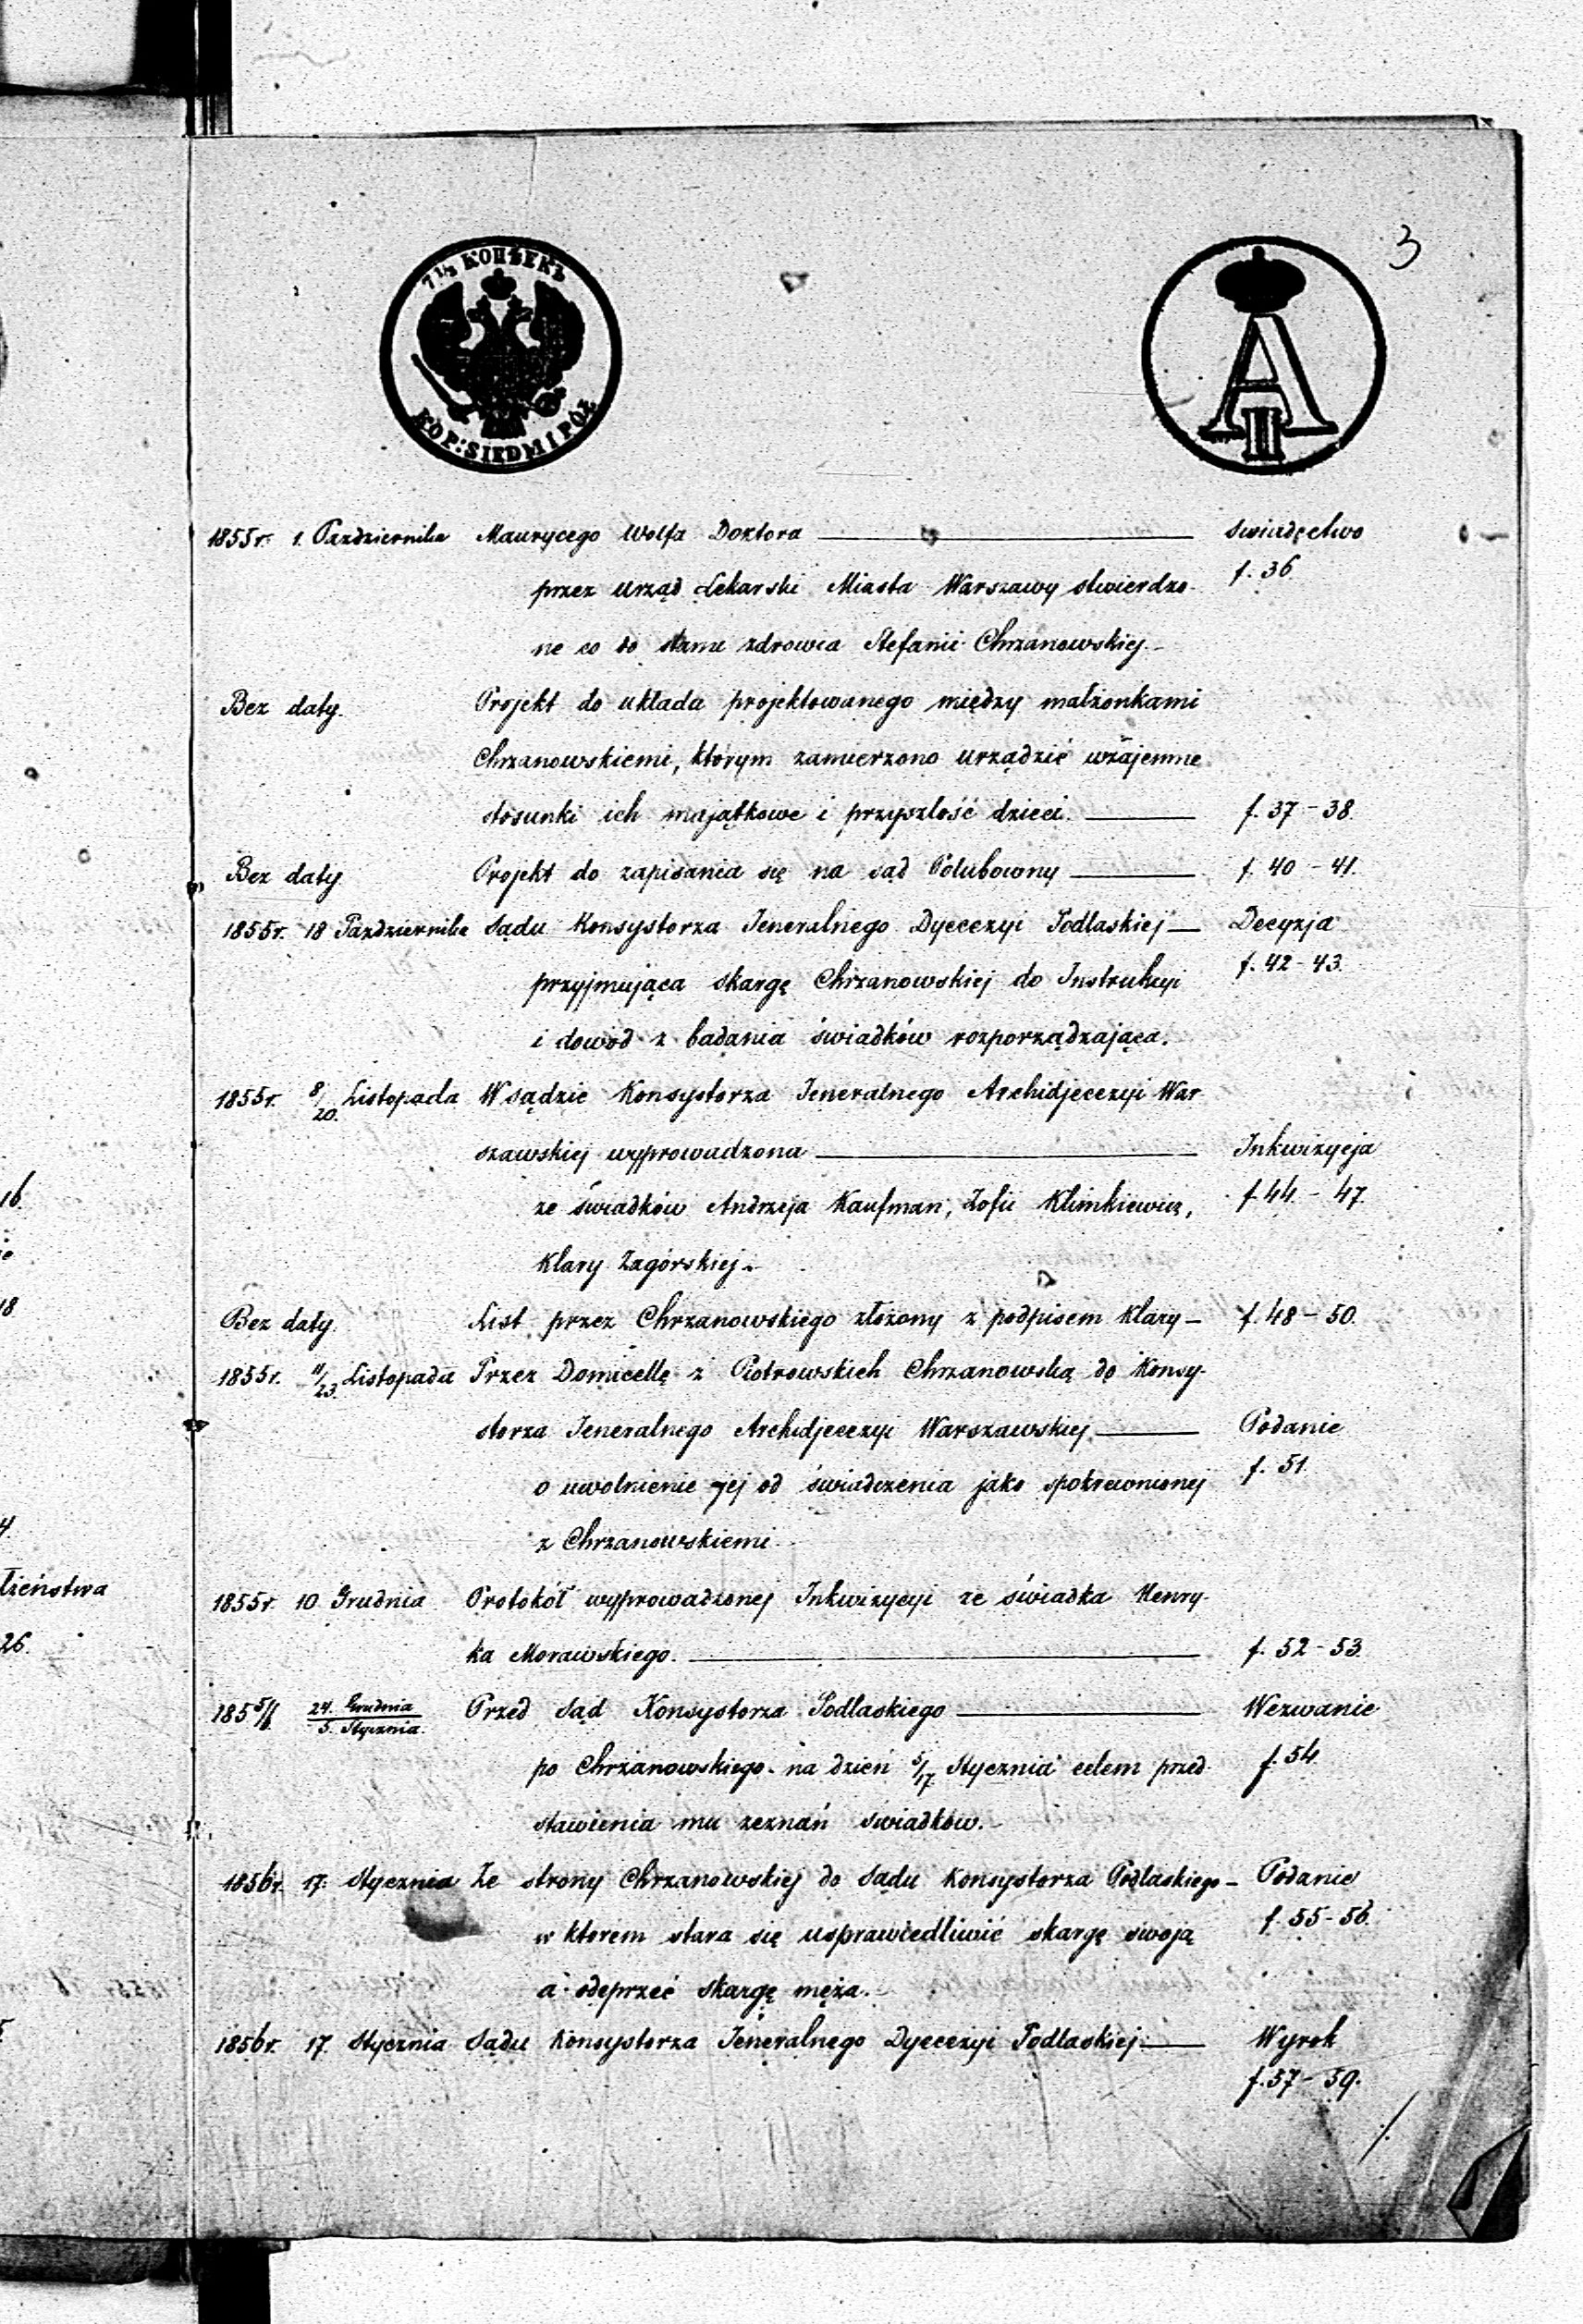 3
7½ КОПѢЕКЪ
KOP: SIEDM I PÓŁ
A II
1855r. 1. Października Maurycego Wolfa Doktora Świadectwo
przez Urząd Lekarski Miasta Warszawy stwierdzo- f. 36
ne co do stanu zdrowia Stefanii Chrzanowskiej.-
Bez daty. Projekt do układu projektowanego między małżonkami
Chrzanowskiemi, którym zamierzono urządzić wzajemne
stosunki ich majątkowe i przyszłość dzieci. f. 37-38.
Bez daty Projekt do zapisania się na sąd Polubowny f. 40-41.
1855r. 18 Października Sądu Konsystorza Jeneralnego Dyecezyi Podlaskiej Decyzja
przyjmująca skargę Chrzanowskiej do Instrukcyi f. 42-43.
i dowód z badania świadków rozporządzająca.
1855r. 8/20. Listopada W sądzie Konsystorza Jeneralnego Archidjecezyi War
szawskiej wyprowadzona Inkwizycja
ze świadków Andrzeja Kaufman, Zofii Klimkiewicz, f. 44.-47.
Klary Zagórskiej.-
Bez daty. List przez Chrzanowskiego złożony z podpisem Klary- f. 48-50.
1855r. 11/23. Listopada Przez Domicellę z Piotrowskich Chrzanowską do Konsy-
storza Jeneralnego Archidjecezyi Warszawskiej Podanie
o uwolnienie jej od świadczenia jako spokrewnionej f. 51.
z Chrzanowskiemi
1855r 10 Grudnia Protokół wyprowadzonej Inkwizycyi ze świadka Henry-
ka Morawskiego. f. 52-53.
1855/6 24. Grudnia/5. Stycznia. Przed Sąd Konsystorza Podlaskiego Wezwanie
po Chrzanowskiego na dzień 5/17. Stycznia celem przed- f. 54.
stawienia mu zeznań świadków.-
1856r. 17. Stycznia Ze strony Chrzanowskiej do Sądu Konsystorza Podlaskiego- Podanie
w którem stara się usprawiedliwić skargę swoją f. 55-56.
a odeprzeć skargę męża.-
1856r. 17. Stycznia Sądu Konsystorza Jeneralnego Dyecezyi Podlaskiej Wyrok
f. 57-59.
16.
18
4.
łżeństwa
26.